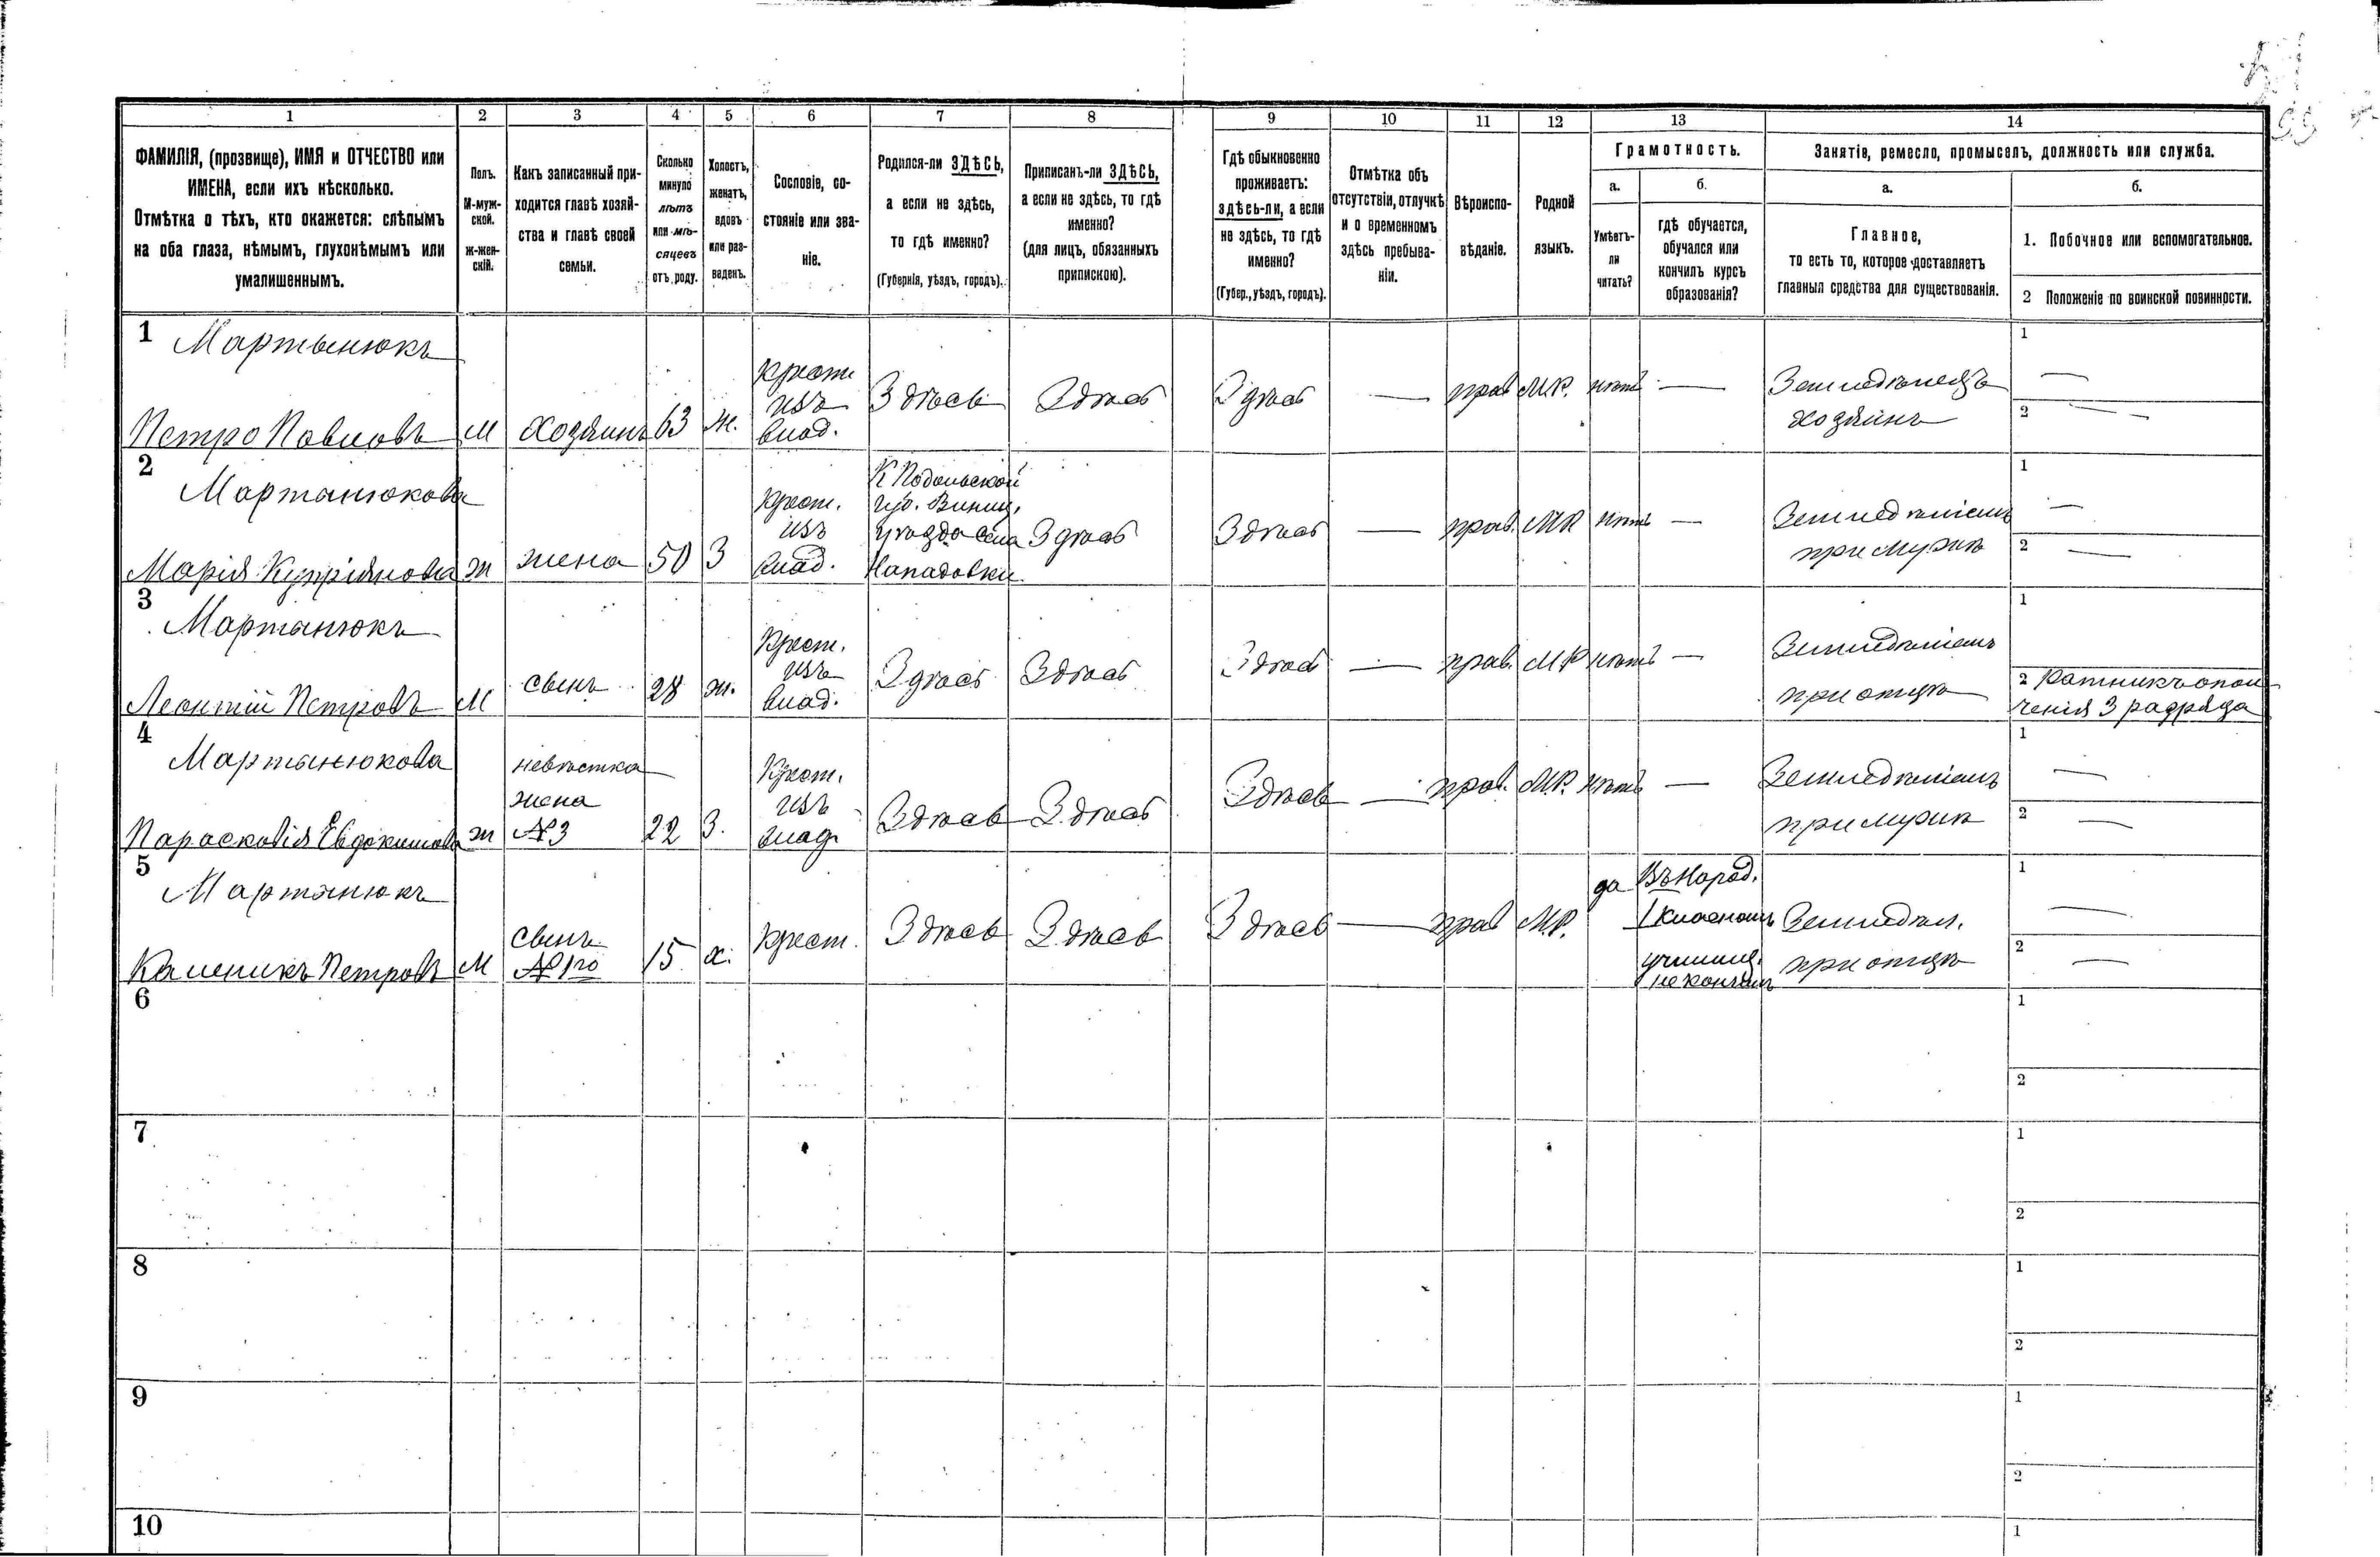 1 2 3 4 5 6 7 8 9 10 11 12 13 14
ФАМИЛІЯ, (прозвище), ИМЯ и ОТЧЕСТВО или
ИМЕНА, если ихъ нѣсколько.
Отмѣтка о тѣхъ, кто окажется: слѣпымъ
на оба глаза, нѣмымъ, глухонѣмымъ или
умалишеннымъ.
Полъ.
М-муж-
ской.
ж-жен-
скій.
Какъ записанный при-
ходится главѣ хозяй-
ства и главѣ своей
семьи.
Сколько
минуло
лѣтъ
или мѣ-
сяцевъ
отъ роду.
Холостъ,
женатъ,
вдовъ
или раз-
веденъ.
Сословіе, со-
стояніе или зва-
ніе.
Родился-ли ЗДѢСЬ,
а если не здѣсь,
то гдѣ именно?
(Губернія, уѣздъ, городъ).
Приписанъ-ли ЗДѢСЬ,
а если не здѣсь, то гдѣ
именно?
(для лицъ, обязанныхъ
припискою).
Гдѣ обыкновенно
проживаетъ:
здѣсь-ли, а если
не здѣсь, то гдѣ
именно?
(Губер., уѣздъ, городъ).
Отмѣтка объ
отсутствіи, отлучкѣ
и о временномъ
здѣсь пребыва-
ніи.
Вѣроиспо-
вѣданіе.
Родной
языкъ.
Грамотность.
а.
Умѣетъ-
ли
читать?
б.
гдѣ обучается,
обучался или
кончилъ курсъ
образованія?
Занятіе, ремесло, промыселъ, должность или служба.
а.
Главное,
то есть то, которое доставляетъ
главныя средства для существованія.
б.
1. Побочное или вспомогательное.
2 Положеніе по воинской повинности.
1 Мартынюкъ
Петро Павловъ
М
Хозяинъ
63
ж.
крест
изъ
влад.
Здѣсь
Здѣсь
Здѣсь
—
прав
М.Р.
нѣтъ
—
Земледѣлецъ
хозяинъ
1
—
2
—
2
Мартанюкова
Марія Купріянова
ж
жена
50
З
Крест.
изъ
влад.
Подольской
губ. Винниц.
уѣзда села
Нападовки
Здѣсь
Здѣсь
—
прав.
МР
нѣтъ
—
Земледѣліемъ
при мужѣ
1
—
2
—
3
Мартанюкъ
Леонтій Петровъ
М
сынъ
28
ж.
Крест.
изъ
влад.
Здѣсь
Здѣсь
Здѣсь
—
прав.
МР
нѣтъ
—
Земледѣліемъ
при отцѣ
1
2 Ратникъ опол-
ченія 3 разряда
4
Мартынюкова
Парасковія Евдокимова
ж
невѣстка
жена
№ 3
22
З.
Крест.
изъ
влад
Здѣсь
Здѣсь
Здѣсь
—
прав.
М.Р.
нѣтъ
—
Земледѣліемъ
при мужѣ
1
—
2
—
5
Мартанюкъ
Каленикъ Петровъ
М
сынъ
№ 1го
15
х.
Крест.
Здѣсь
Здѣсь
Здѣсь
—
прав
М.Р.
да
Въ Народ.
1 класномъ
училищ.
не кончилъ
Земледѣл.
при отцѣ
1
—
2
—
6
1
2
7
1
2
8
1
2
9
1
2
10
1